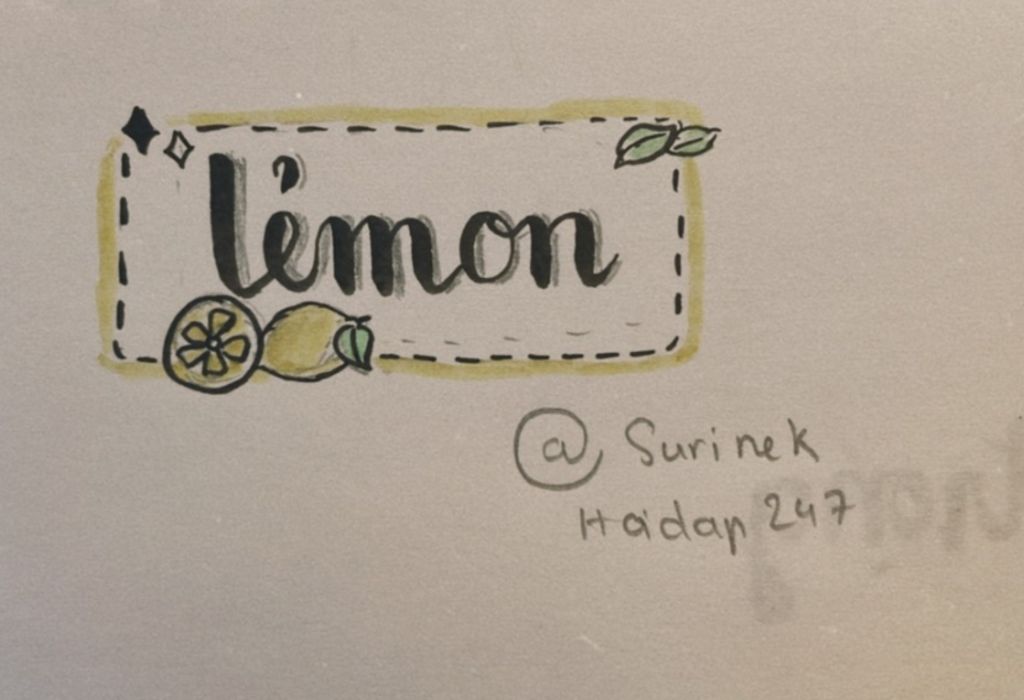 lémon
@ Surinek
Haidap 247